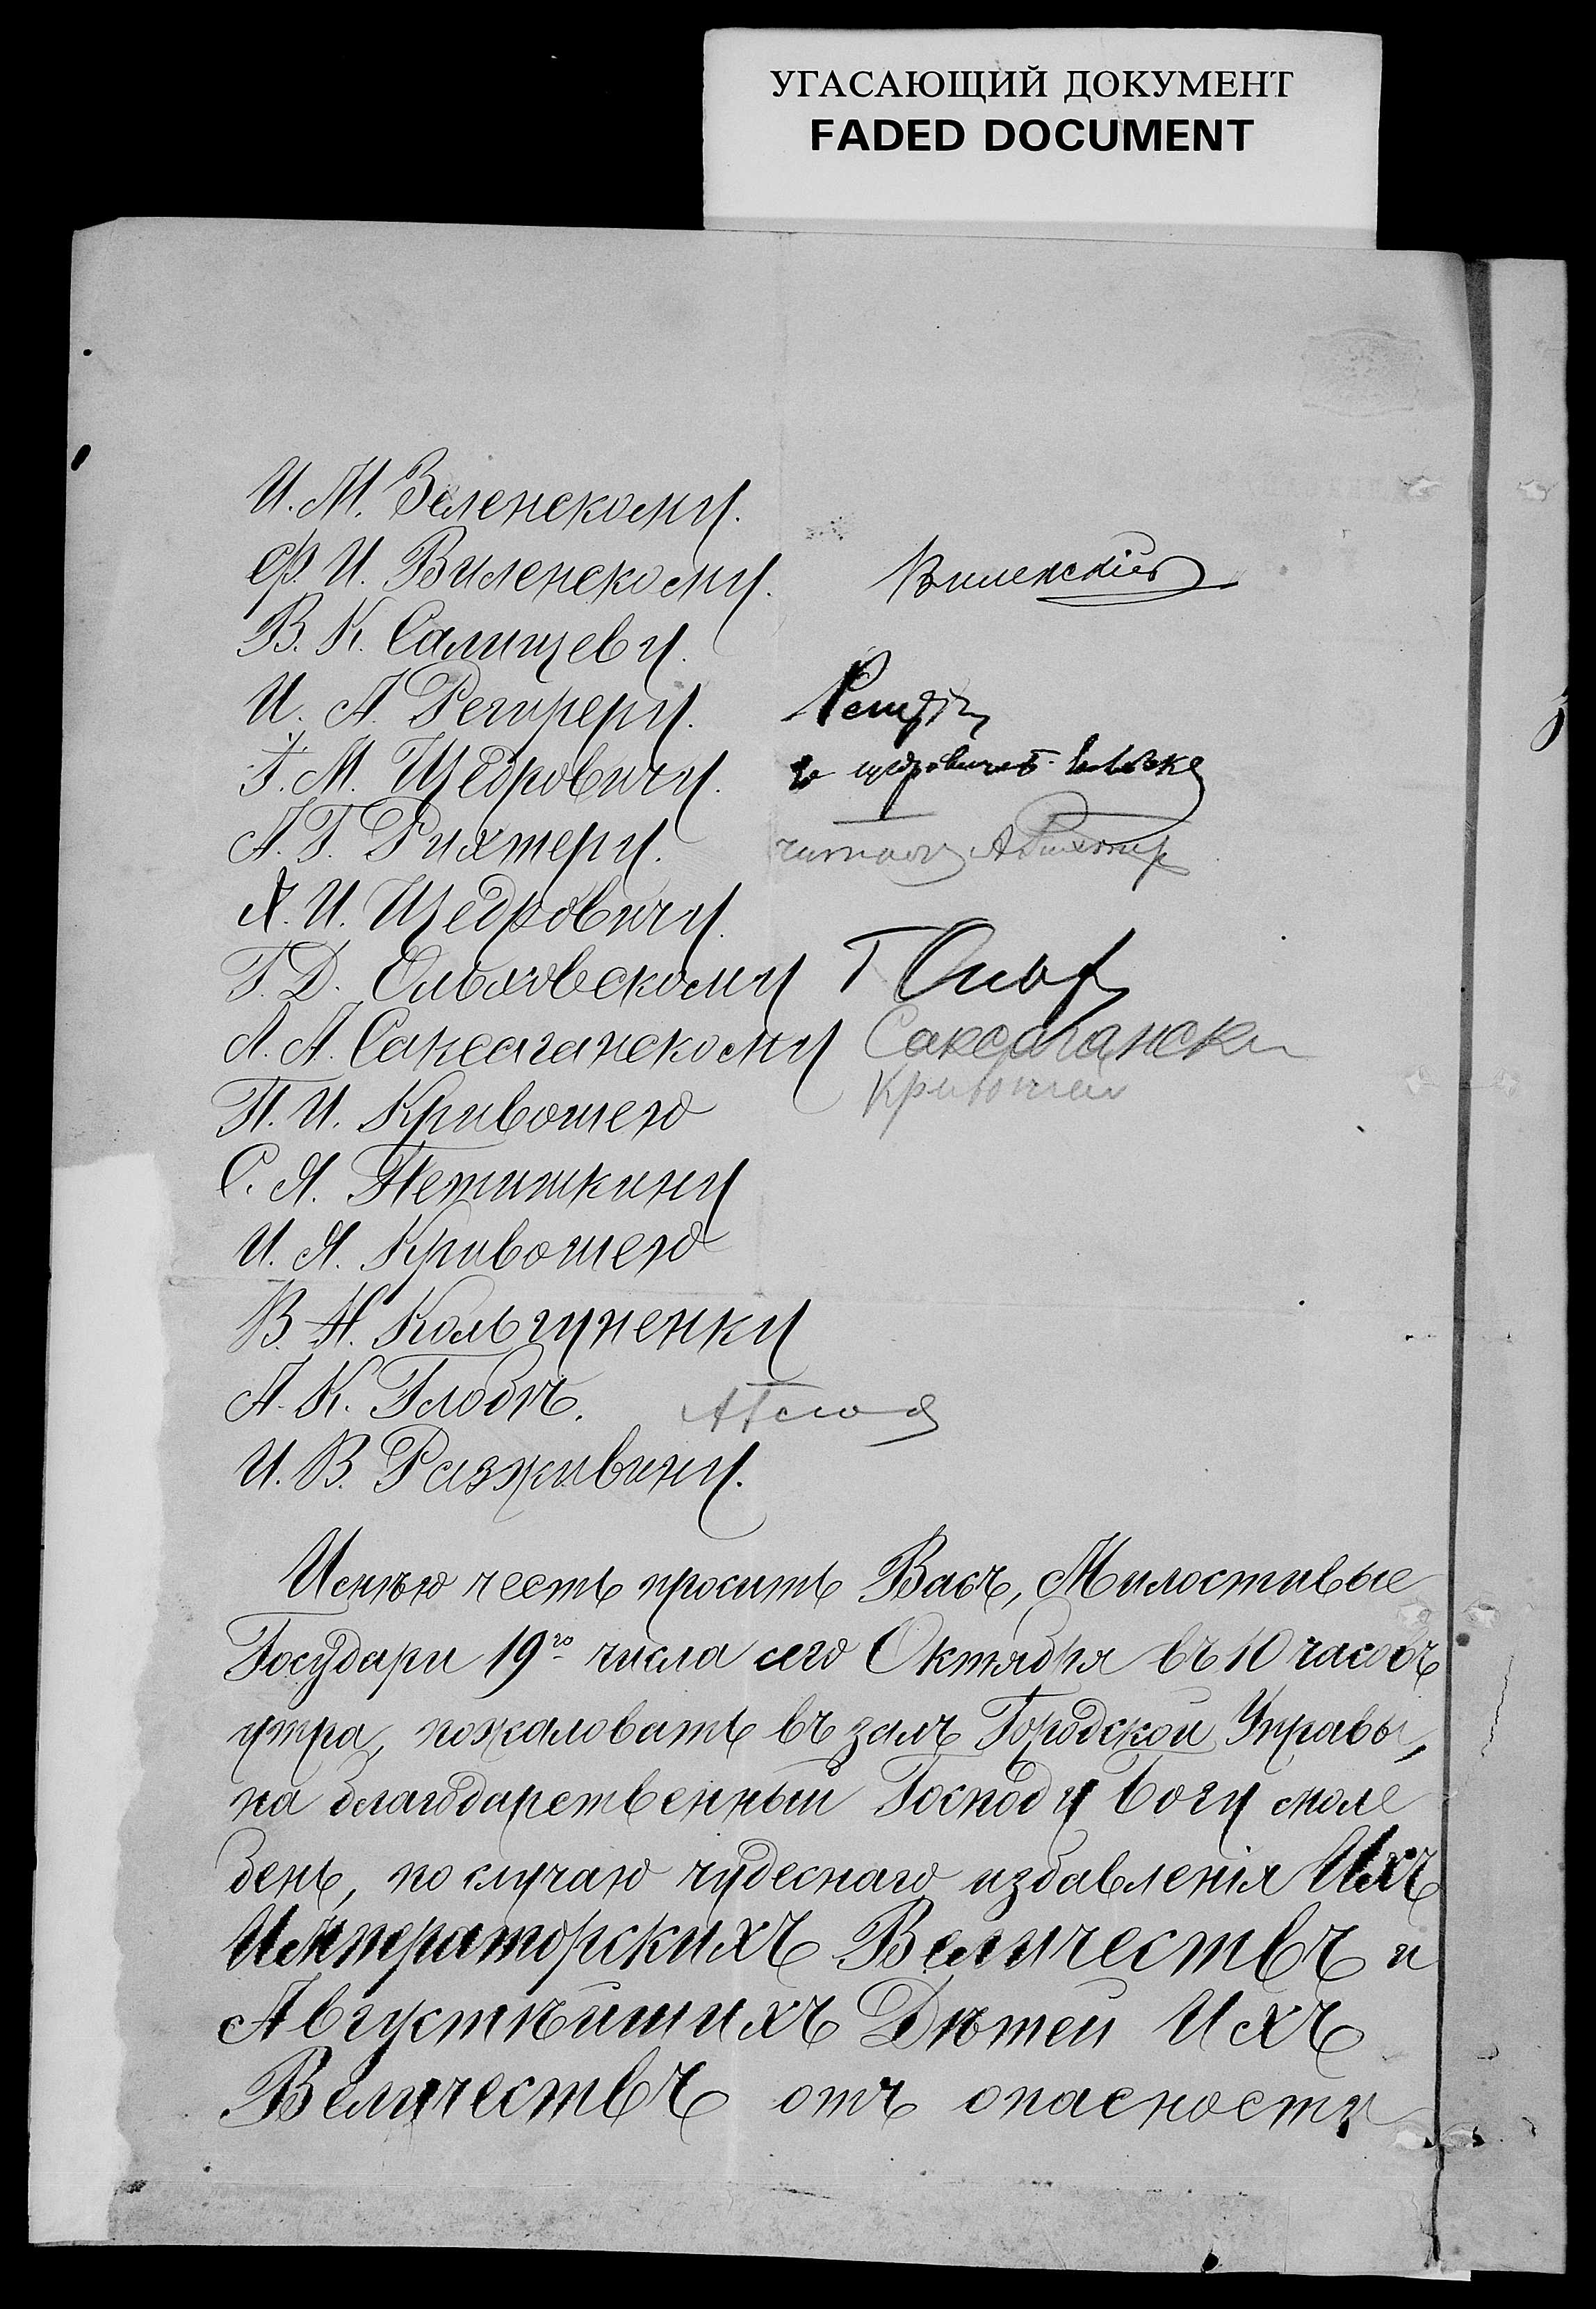 УГАСАЮЩИЙ ДОКУМЕНТ
FADED DOCUMENT
И. М. Зеленскому.
Ф. И. Виленскому. Виленскій
В. К. Салищеву.
И. А. Рейтереру.
Г. М. Щедровичу. щедровичъ
А. Г. Рихтеру. читалъ А Рихтер
Х. И. Щедровичу.
Г. Д. Ольховскому Г Ольх
А. А. Саксаганскому Саксагански
П. И. Кривошею Кривошей
С. Я. Петишкину
И. Я. Кривошею
В. Н. Кользуненку
А. К. Глобѣ. А Глоб
И. В. Разживину.
Имѣю честь просить Васъ, Милостивые
Государи 19го числа сего Октября въ 10 часовъ
утра, пожаловать въ залъ Городской Управы,
на благодарственный Господу Богу моле
бень, по случаю чудеснаго избавленія Ихъ
Императорскихъ Величествъ и
Августѣйшихъ Дѣтей Ихъ
Величествъ отъ опасности